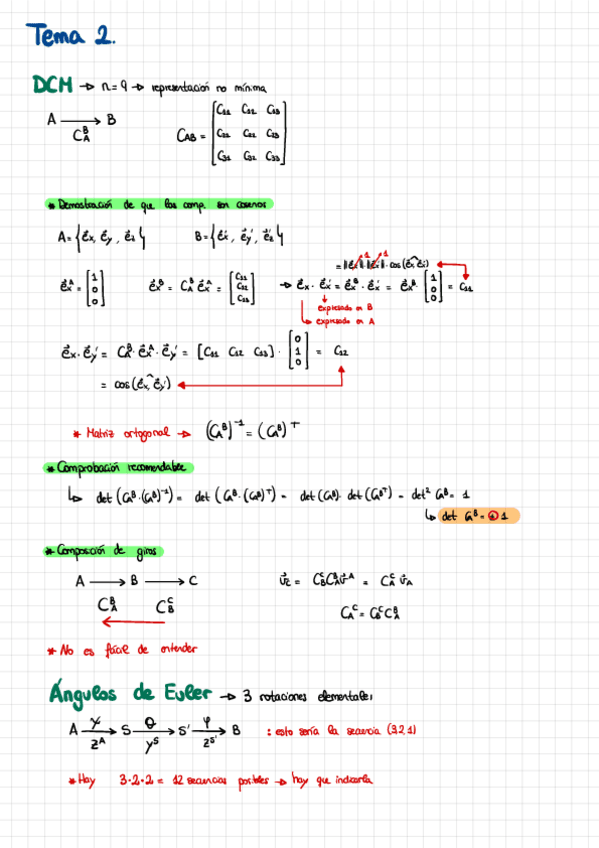 Tema 2.
DCM → n=9 → representación no mínima
A → B
C_A^B
C_AB = [C11 C12 C13
C21 C22 C23
C31 C32 C33]
* Demostración de que las comp. son cosenos
A = {e⃗x, e⃗y, e⃗z} B = {e⃗x', e⃗y', e⃗z'}
= ||e⃗x|| ||e⃗x'|| · cos(e⃗x^e⃗x')
1 1
e⃗x^A = [1 0 0] e⃗x^B = C_A^B e⃗x^A = [C11 C12 C13] → e⃗x · e⃗x' = e⃗x^B · e⃗x' = e⃗x^B · [1 0 0] = C11
expresado en B
expresado en A
e⃗x · e⃗y' = C_A^B · e⃗x^A · e⃗y' = [C11 C12 C13] · [0 1 0] = C12
= cos(e⃗x^e⃗y')
* Matriz ortogonal → (C_A^B)^-1 = (C_A^B)^T
* Comprobación recomendable
↳ det(C_A^B · (C_A^B)^-1) = det(C_A^B · (C_A^B)^T) = det(C_A^B) · det(C_A^B^T) = det² C_A^B = 1
* Composición de giros
A → B → C
C_A^B C_B^C
C_A^C = C_B^C C_A^B
* No es fácil de entender
Ángulos de Euler → 3 rotaciones elementales
S S' B : esto sería la secuencia (3,2,1)
* Hay 3·2·2 = 12 secuencias posibles → hay que indicarla